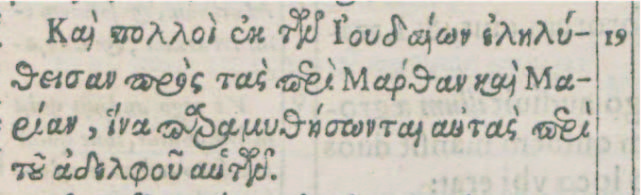 Καὶ πολλοὶ ἐκ τῶν Ἰουδαίων ἐληλύ- 19
θεισαν πρὸς τὰς περὶ Μάρθαν καὶ Μα-
ρίαν, ἵνα παραμυθήσωνται αὐτὰς περὶ
τοῦ ἀδελφοῦ αὐτῶν.